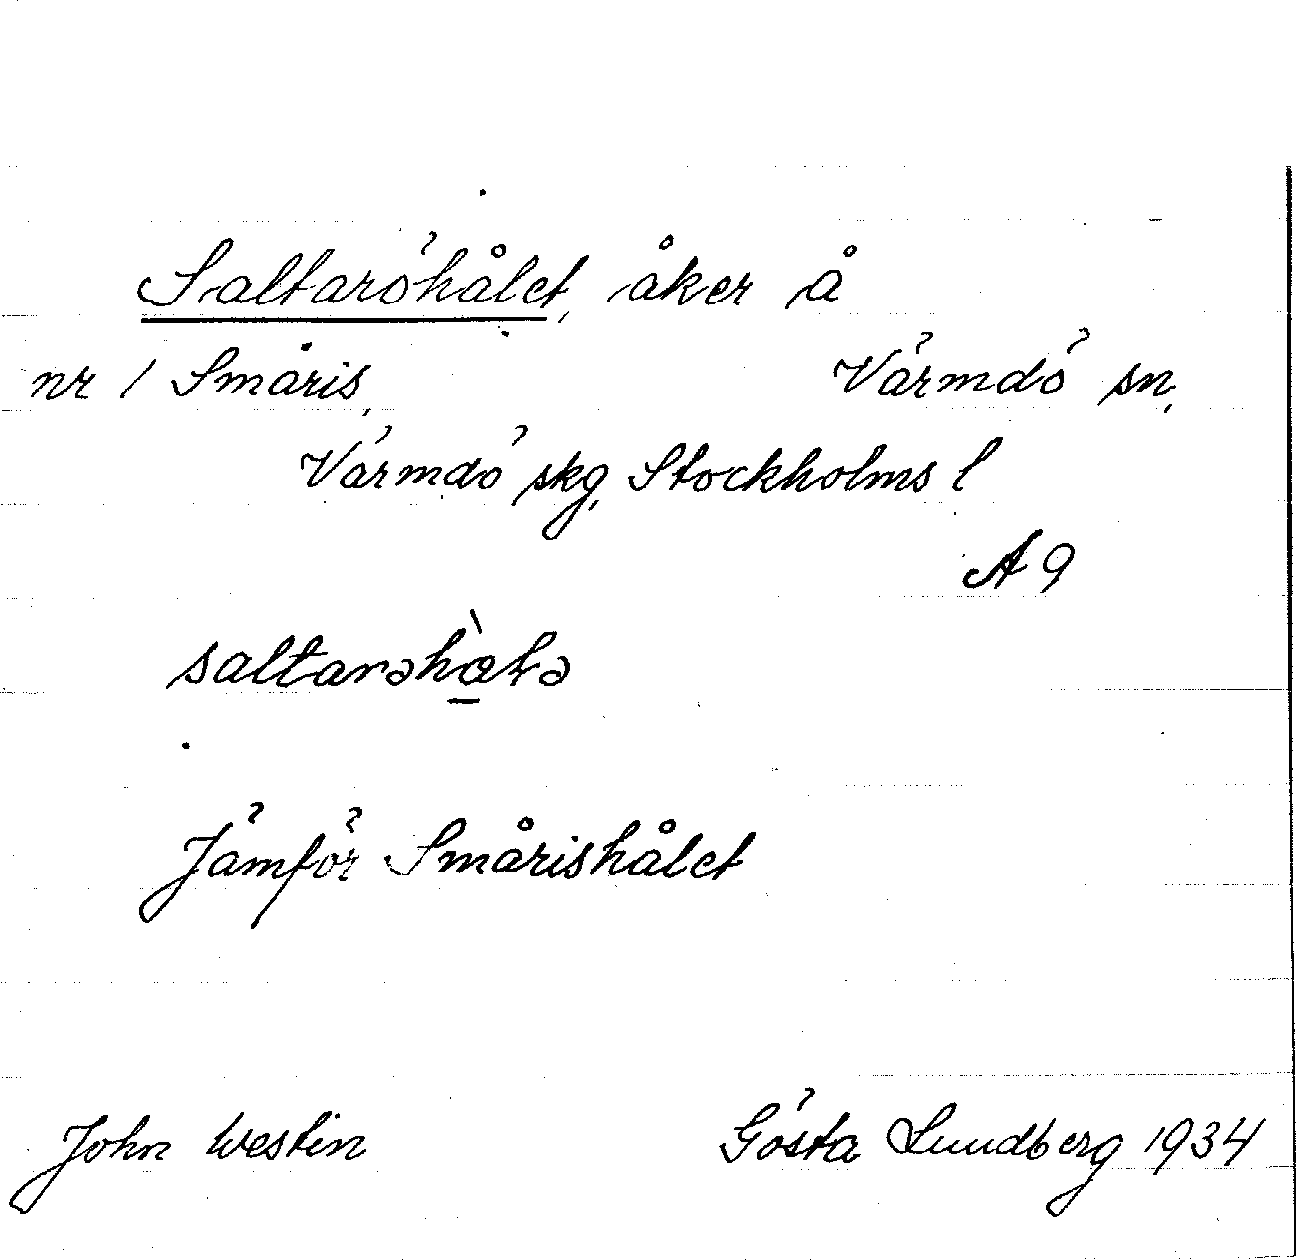 Saltaröhålet, åker å
nr 1 Småris, Värmdö sn,
Värmdö skg, Stockholms l
A 9
saltarəhɷ̀lə
Jämför Smårishålet
John Westin Gösta Lundberg 1934